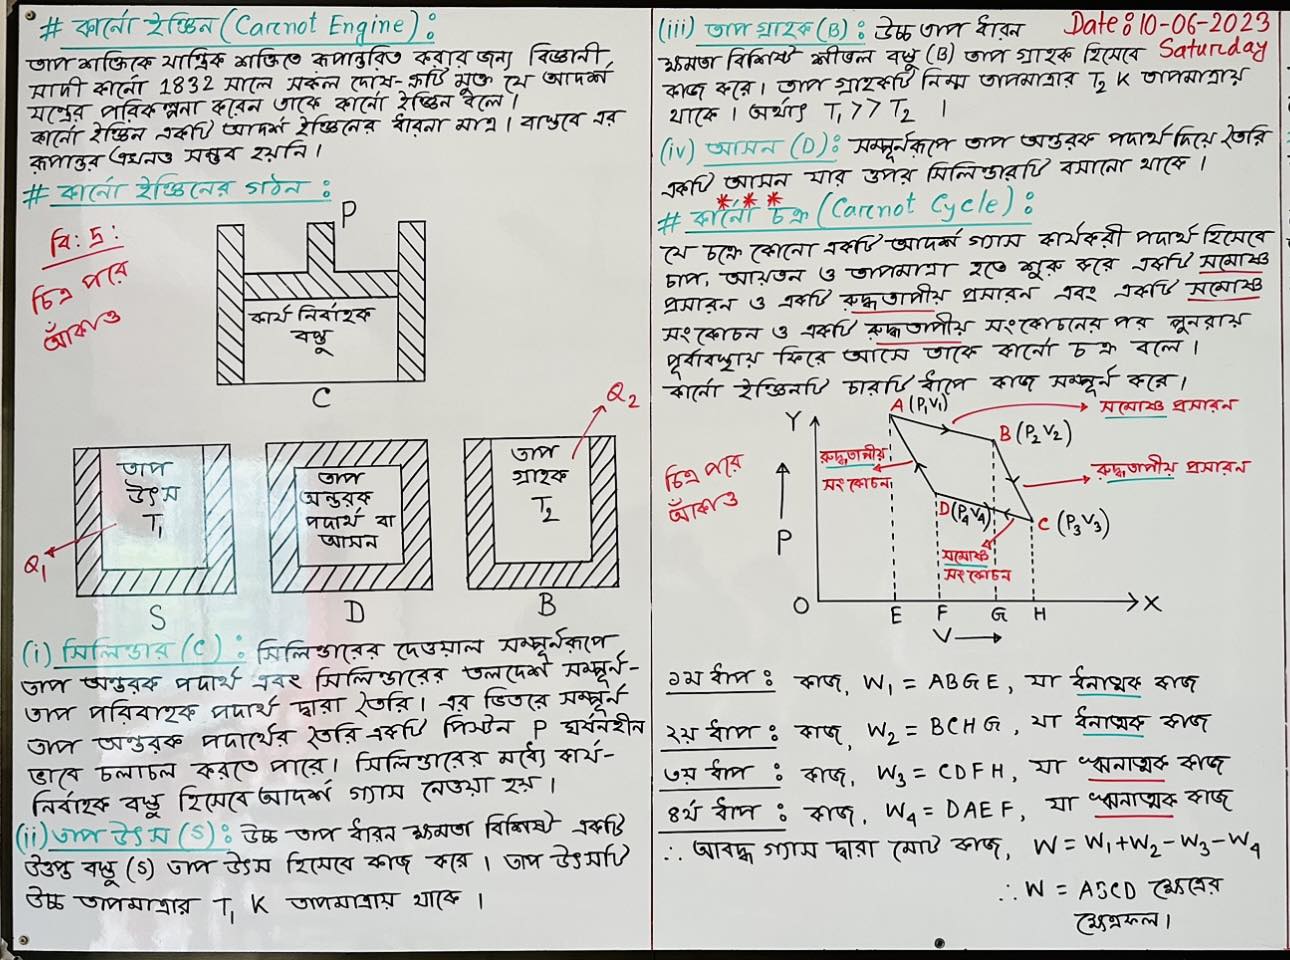 # কার্নো ইঞ্জিন (Carnot Engine) :
তাপ শক্তিকে যান্ত্রিক শক্তিতে রূপান্তরিত করার জন্য বিজ্ঞানী
সাদী কার্নো 1832 সালে সকল দোষ-ত্রুটি মুক্ত যে আদর্শ
যন্ত্রের পরিকল্পনা করেন তাকে কার্নো ইঞ্জিন বলে।
কার্নো ইঞ্জিন একটি আদর্শ ইঞ্জিনের ধারনা মাত্র। বাস্তবে এর
রূপান্তর এখনও সম্ভব হয়নি।
# কার্নো ইঞ্জিনের গঠন :
বি: দ্র:
চিত্র পরে
আঁকাও
P
কার্য নির্বাহক
বস্তু
C
তাপ
উৎস
T₁
Q₁
S
তাপ
অন্তরক
পদার্থ বা
আসন
D
Q₂
তাপ
গ্রাহক
T₂
B
(i) সিলিন্ডার (C) : সিলিন্ডারের দেওয়াল সম্পূর্নরূপে
তাপ অন্তরক পদার্থ এবং সিলিন্ডারের তলদেশ সম্পূর্ন-
তাপ পরিবাহক পদার্থ দ্বারা তৈরি। এর ভিতরে সম্পূর্ন
তাপ অন্তরক পদার্থের তৈরি একটি পিস্টন P ঘর্ষনহীন
ভাবে চলাচল করতে পারে। সিলিন্ডারের মধ্যে কার্য-
নির্বাহক বস্তু হিসেবে আদর্শ গ্যাস নেওয়া হয়।
(ii) তাপ উৎস (S) : উচ্চ তাপ ধারন ক্ষমতা বিশিষ্ট একটি
উত্তপ্ত বস্তু (S) তাপ উৎস হিসেবে কাজ করে। তাপ উৎসটি
উচ্চ তাপমাত্রার T₁ K তাপমাত্রায় থাকে।
(iii) তাপ গ্রাহক (B) : উচ্চ তাপ ধারন
Date : 10-06-2023
Saturday
ক্ষমতা বিশিষ্ট শীতল বস্তু (B) তাপ গ্রাহক হিসেবে
কাজ করে। তাপ গ্রাহকটি নিম্ন তাপমাত্রার T₂ K তাপমাত্রায়
থাকে। অর্থাৎ T₁ >> T₂ ।
(iv) আসন (D) : সম্পূর্নরূপে তাপ অন্তরক পদার্থ দিয়ে তৈরি
একটি আসন যার ওপর সিলিন্ডারটি বসানো থাকে।
***
# কার্নো চক্র (Carnot Cycle) :
যে চক্রে কোনো একটি আদর্শ গ্যাস কার্যকরী পদার্থ হিসেবে
চাপ, আয়তন ও তাপমাত্রা হতে শুরু করে একটি সমোষ্ণ
প্রসারন ও একটি রুদ্ধতাপীয় প্রসারন এবং একটি সমোষ্ণ
সংকোচন ও একটি রুদ্ধতাপীয় সংকোচনের পর পুনরায়
পূর্বাবস্থায় ফিরে আসে তাকে কার্নো চক্র বলে।
কার্নো ইঞ্জিনটি চারটি ধাপে কাজ সম্পূর্ন করে।
চিত্র পরে
আঁকাও
Y
A (P₁V₁)
সমোষ্ণ প্রসারন
B (P₂V₂)
রুদ্ধতাপীয়
সংকোচন
রুদ্ধতাপীয় প্রসারন
D(P₄V₄)
C (P₃V₃)
P
সমোষ্ণ
সংকোচন
O
E F G H
X
V
১ম ধাপ : কাজ, W₁ = ABGE, যা ধনাত্মক কাজ
২য় ধাপ : কাজ, W₂ = BCHG, যা ধনাত্মক কাজ
৩য় ধাপ : কাজ, W₃ = CDFH, যা ঋনাত্মক কাজ
৪র্থ ধাপ : কাজ, W₄ = DAEF, যা ঋনাত্মক কাজ
∴ আবদ্ধ গ্যাস দ্বারা মোট কাজ, W = W₁+W₂-W₃-W₄
∴ W = ABCD ক্ষেত্রের
ক্ষেত্রফল।